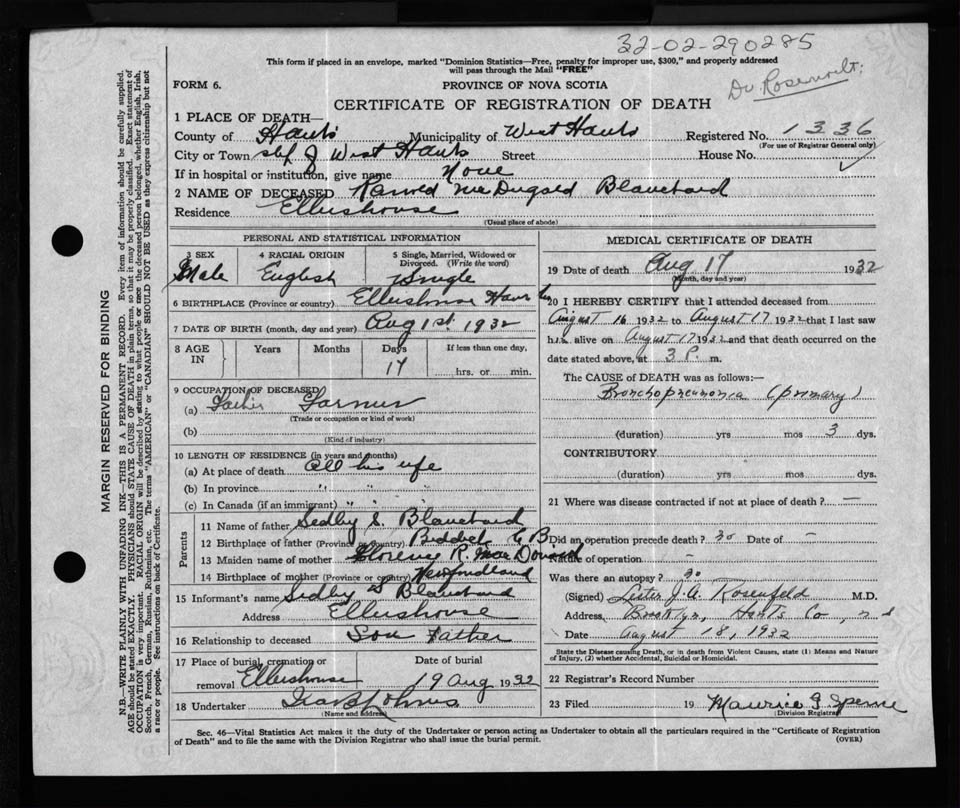 32-02-290285
This form if placed in an envelope, marked "Dominion Statistics—Free, penalty for improper use, $300," and properly addressed
will pass through the Mail "FREE"
Dr Rosenvelt:
FORM 6.
PROVINCE OF NOVA SCOTIA
CERTIFICATE OF REGISTRATION OF DEATH
1 PLACE OF DEATH—
County of Hants Municipality of West Hants Registered No. 1336
(For use of Registrar General only)
City or Town of West Hants Street House No.
If in hospital or institution, give name None
2 NAME OF DECEASED Blanchard
Residence Ellershouse
(Usual place of abode)
PERSONAL AND STATISTICAL INFORMATION
3 SEX 4 RACIAL ORIGIN 5 Single, Married, Widowed or Divorced. (Write the word)
Male English Single
6 BIRTHPLACE (Province or country) Ellershouse Hants
7 DATE OF BIRTH (month, day and year) Aug 1st 1932
8 AGE IN Years Months Days If less than one day,
17 hrs. or min.
9 OCCUPATION OF DECEASED
(a) Father Farmer
(Trade or occupation or kind of work)
(b)
(Kind of industry)
10 LENGTH OF RESIDENCE (in years and months)
(a) At place of death All his life
(b) In province " " "
(c) In Canada (if an immigrant) " " "
Parents
11 Name of father Sedley S. Blanchard
12 Birthplace of father (Province or country) C B
13 Maiden name of mother Florence R. MacDonald
14 Birthplace of mother (Province or country) Newfoundland
15 Informant's name Sidley S Blanchard
Address Ellershouse
16 Relationship to deceased Son Father
17 Place of burial, cremation or removal Ellershouse Date of burial 19 Aug 1932
18 Undertaker
(Name and address)
MEDICAL CERTIFICATE OF DEATH
19 Date of death Aug 17 1932
(Month, day and year)
20 I HEREBY CERTIFY that I attended deceased from
August 16 1932 to August 17 1932 that I last saw
h alive on August 17 1932 and that death occurred on the
date stated above, at 3 P. m.
The CAUSE OF DEATH was as follows:—
Bronchopneumonia (primary)
(duration) yrs mos 3 dys.
CONTRIBUTORY
(duration) yrs mos dys.
21 Where was disease contracted if not at place of death? —
Did an operation precede death? no Date of —
Nature of operation —
Was there an autopsy? no
(Signed) Lester J.A. Rosenfeld M.D.
Address, Brooklyn, Hants Co, n s
Date August 18, 1932
State the Disease causing Death, or in death from Violent Causes, state (1) Means and Nature
of Injury, (2) whether Accidental, Suicidal or Homicidal.
22 Registrar's Record Number
23 Filed 19 Maurice
(Division Registrar)
Sec. 46—Vital Statistics Act makes it the duty of the Undertaker or person acting as Undertaker to obtain all the particulars required in the "Certificate of Registration
of Death" and to file the same with the Division Registrar who shall issue the burial permit.
(OVER)
MARGIN RESERVED FOR BINDING
N.B.—WRITE PLAINLY WITH UNFADING INK—THIS IS A PERMANENT RECORD. Every item of information should be carefully supplied.
AGE should be stated EXACTLY. PHYSICIANS should STATE CAUSE OF DEATH in plain terms, so that it may be properly classified. Exact statement of
OCCUPATION is very important. RACIAL ORIGIN will be described by stating to what people or race the deceased person belonged, whether English, Irish,
Scotch, French, German, Russian, Ruthenian, etc. The terms "AMERICAN" or "CANADIAN" SHOULD NOT BE USED as they express citizenship but not
a race or people. See instructions on back of Certificate.